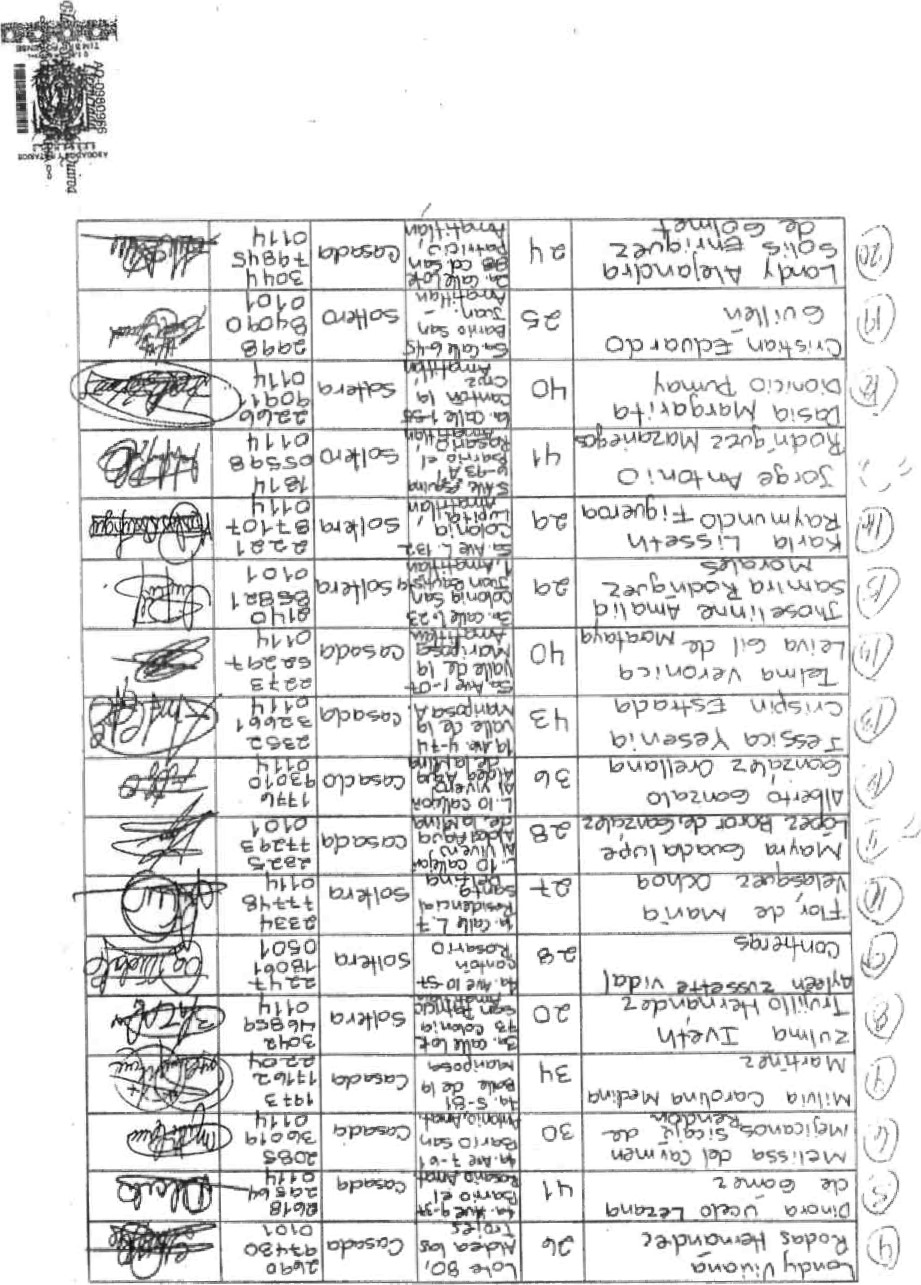 4
Landy Viviana
Rodas Hernandez
26
Lote 80,
Aldea las
Trojes
Casada
2690
97430
0101
5
Dinora Ucelo Lezana
de Gomez
41
4a. Ave 9-31
Barrio el
Rosario Amat.
Casada
2618
29564
0114
6
Melissa del Carmen
Mejicanos Sicajú de
Rendón
30
4a. Ave 7-61
Barrio San
Antonio, Amat.
Casada
2085
36019
0114
7
Milvia Carolina Medina
Martinez
34
4a. 5-81
Balle de la
Mariposa
Casada
1973
17162
2204
8
Zulma Iveth
Trujillo Hernandez
20
3a. calle Lot.
73 Colonia
San Patricio
Amatitlan
Soltera
3042
46859
0114
9
Ayleen Zussette Vidal
Contreras
28
4a. Ave 10-57
Cantón
Rosario
Soltera
2247
18061
0501
10
Flor de María
Velasquez Ochoa
27
4a. Calle L. 7
Residencial
Santa
Delfina
Soltera
2334
77748
0114
11
Mayra Guadalupe
López Boror de González
28
L. 10 callejón
Al Vivero,
Aldea Agua
de la Mina
Casada
2825
77293
0101
12
Alberto Gonzalo
González Orellana
36
L. 10 callejón
Al vivero,
Aldea Agua
de la Mina
Casado
1776
93010
0114
13
Jessica Yesenia
Crispin Estrada
43
1a. Ave. 4-74
Valle de la
Mariposa A.
Casada
2352
32661
0114
14
Telma Veronica
Leiva Gil de Monataya
40
5a. Ave 1-07
Valle de la
Mariposa
Amatitlan
Casada
2273
62297
0114
15
Jhoselinne Amalia
Samira Rodríguez
Morales
29
3a. calle L. 23
Colonia San
Juan Bautista
1, Amatitlan
Soltera
2140
85821
0101
16
Karla Lisseth
Raymundo Figueroa
29
5a. Ave L. 132
Colonia
Lupita,
Amatitlan
Soltera
2221
87107
0114
Jorge Antonio
Rodríguez Mazariegos
41
5 Ave, Esquina
6-93 A
Barrio el
Rosario,
Amatitlan
Soltero
1814
05598
0114
18
Dasia Margarita
Dionicio Pumay
40
1a. Calle 1-55
Cantón la
Cruz,
Amatitlan
Soltera
2266
9091
0114
19
Cristian Eduardo
Guillén
25
5a. Calle 6-45
Barrio San
Juan,
Amatitlan
Soltero
2998
84090
0101
20
Landy Alejandra
Solis Enriquez
de Golmet
24
2a. Calle Lote
98 Col San
Patricio,
Amatitlan
Casada
3044
79845
0114
ABOGADOS Y NOTARIOS
AO-0908966
TIMBRE FORENSE